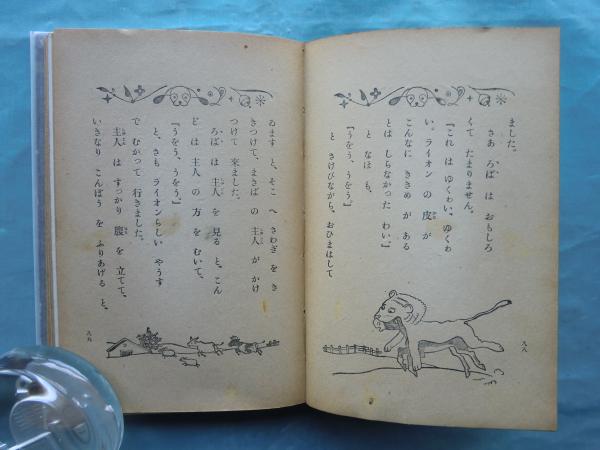 ました。
さあ ろば は おもしろ
くて たまりません。
『これ は ゆくわい、ゆくわ
い。ライオン の 皮 が
こんなに ききめ が ある
とは しらなかった わい。』
と なほ も、
『うをう、うをう。』
と さけびながら、おひまはして
九八
ゐます と、そこ へ さわぎ を き
きつけて、まきば の 主人 が かけ
つけて 来ました。
ろば は 主人 を 見る と、こん
ど は 主人 の 方 を むいて、
『うをう、うをう。』
と、さも ライオンらしい やうす
で むかって 行きました。
主人 は すっかり 腹 を 立てて、
いきなり こんぼう を ふりあげる と、
九九